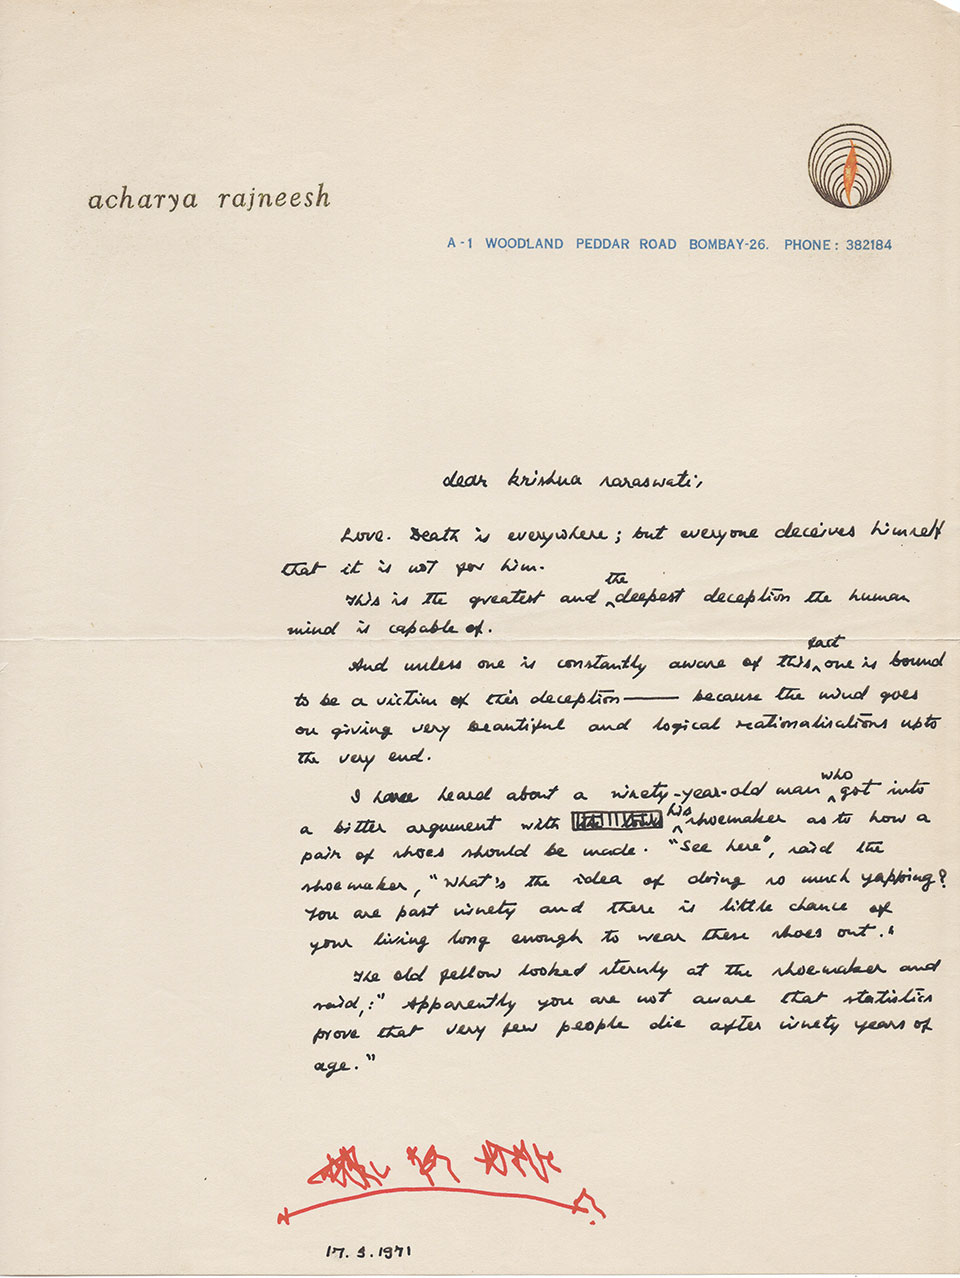 acharya rajneesh
A-1 WOODLAND PEDDAR ROAD BOMBAY-26. PHONE: 382184
dear krishna saraswati,
Love. Death is everywhere; but everyone deceives himself
that it is not for him.
This is the greatest and the deepest deception the human
mind is capable of.
And unless one is constantly aware of this fact one is bound
to be a victim of this deception—— because the mind goes
on giving very beautiful and logical rationalisations upto
the very end.
I have heard about a ninety-year-old man who got into
a bitter argument with his shoemaker as to how a
pair of shoes should be made. "See here", said the
shoemaker, "What's the idea of doing so much yapping?
You are past ninety and there is little chance of
your living long enough to wear these shoes out."
The old fellow looked sternly at the shoemaker and
said,: "Apparently you are not aware that statistics
prove that very few people die after ninety years of
age."
17. 3. 1971